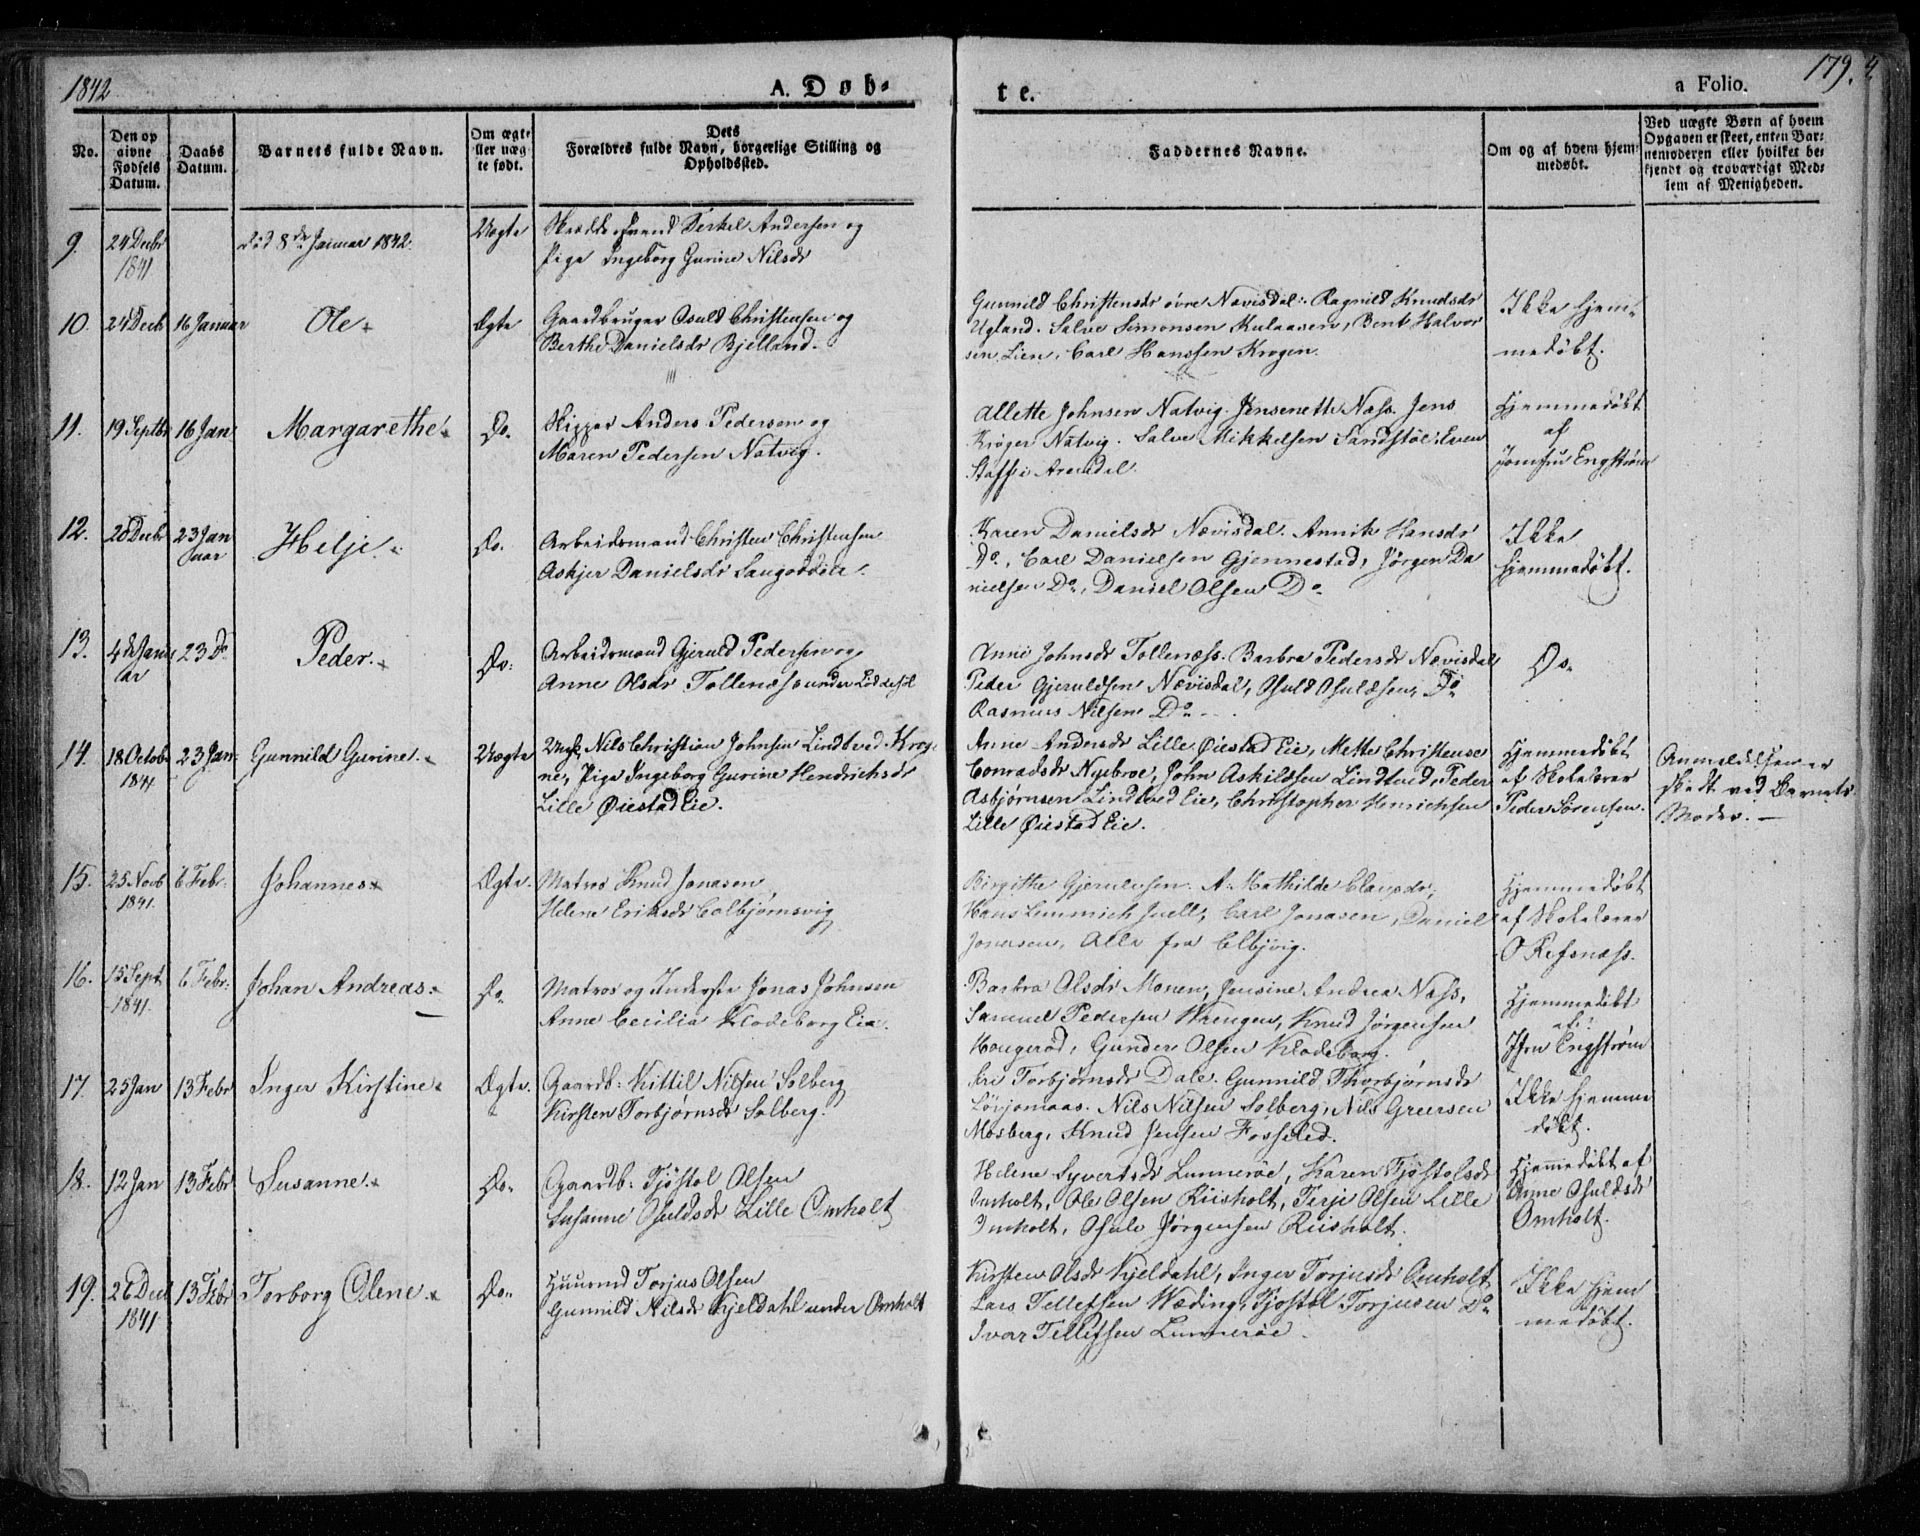 1842
A. Døb-
te.
a Folio.
179.
No.
Den op
givne
Fødsels
Datum.
Daabs
Datum.
Barnets fulde Navn.
Om ægte
eller uæg
te født.
Dets
Forældres fulde Navn, borgerlige Stilling og
Opholdssted.
Faddernes Navne.
Om og af hvem hjem-
medøbt.
Ved uægte Børn af hvem
Opgaven er skeet, enten Bar-
nemoderen eller hvilket be-
kjendt og troværdigt Med-
lem af Menigheden.
9.
24 Decbr
1841
død 8de Januar 1842.
Uægte
Terkel Andersen og
Pige Ingeborg Gurine Nilsdr
10.
24 Decb
16 Januar
Ole
Ægte
Gaardbruger Osuld Christensen og
Berthe Danielsdr Bjelland.
Gunnild Christensdr øvre Nævisdal. Ragnild Knudsdr
Ugland. Salve Simonsen Kulaasen, Bent Halvor
sen Lien, Carl Hanssen Krogen.
Ikke hjem-
medøbt.
11.
19 Septbr
16 Jan
Margarethe
Do.
Skipper Anders Pedersen og
Maren Pedersen Natvig.
Allette Johnsen Natvig. Jensenette Næss. Jens
Krøger Natvig. Salve Mikkelsen Sandstøe. Even
Staffe i Arendal.
Hjemmedøbt
af
Jomfru Engstrøm
12.
20 Decbr
23 Jan
uar
Helje
Do.
Arbeidsmand Christen Christensen
Askjer Danielsdr
Karen Danielsdr Nævisdal. Annik Hansdr
Do, Carl Danielsen Gjennestad, Jørgen Da
nielsen Do, Daniel Olsen Do
Ikke
hjemmedøbt.
13.
4de Janu
ar
23 Do
Peder.
Do:
Arbeidsmand Gjeruld Pedersen og
Anne Olsdr Tollenæs under Løddesøl
Anne Johnsdr Tollenæss. Barbra Pedersdr Nævisdal
Peder Gjeruldsen Nævisdal, Osuld Osuldsen Do
Rasmus Nilsen Do
Do
14.
18 Octob
1841
23 Jan
Gunnild Gurine
Uægte
Ungk Nils Christian Johnsen Lindtved Krog
ne, Pige Ingeborg Gurine Hendrichsdr
Lille Øiestad Eie.
Anne Andersdr Lille Øiestad Eie, Mette Christense
Conradsdr Nyebroe, John Askildsen Lindtved, Peder
Asbjørnsen Lindtved Eie, Christopher Henrichsen
Lille Øiestad Eie.
Hjemmedøbt
af Skolelærer
Peder Sørensen.
Anmeldelsen er
skedt ved Barnets
Moder.
15.
25 Novb
1841.
6 Febr.
Johannes
Ægte.
Matros Knud Jonasen
Helene Eriksdr Colbjørnsvig
Birgithe Gjeruldsen. A. Mathilde Clausdr,
Hans Lemmich Juell, Carl Jonasen, Daniel
Jonassen, Alle fra Colbjvig.
Hjemmedøbt
af Skolelærer
O Refsnæss.
16.
15 Sept
1841.
6 Febr.
Johan Andreas
Do
Matros og Inderste Jonas Johnsen
Anne Cecilia Klodeborg Eie.
Barbra Olsdr Monen, Jensine Andrea Næss,
Samuel Pedersen Wrengen, Knud Jørgensen
Hougerød, Gunder Olsen Klodeborg.
Hjemmedøbt
af
Jfru Engstrøm
17.
25 Jan
13 Febr
Inger Kirstine
Ægte.
Gaardb: Kittil Nilsen Solberg
Kirsten Torbjørnsdr Solberg.
Siri Torbjørnsdr Dale. Gunnild Thorbjørnsdr
Nils Nilsen Solberg, Nils Greersen
Mosberg, Knud Jensen Fosselid.
Ikke hjemme
døbt.
18.
12 Jan
13 Febr
Susanne
Do
Gaardb: Tjøstol Olsen
Susanne Osuldsdr Lille Omholt
Helene Syvertsdr Lunnerøe, Karen Tjøstolsdr
Omholt, Ole Olsen Riisholt, Terje Olsen Lille
Omholt, Osuld Jørgensen Riisholt.
Hjemmedøbt af
Anne Osuldsdr
Omholt.
19.
26 Dec
1841
13 Febr
Torborg Olene
Do
Huusmd Torjus Olsen
Gunnild Nilsdr Kjeldahl under Omholt
Kirsten Olsdr Kjeldahl, Inger Torjusdr Omholt
Lars Tellefsen Wæding, Tjøstol Torjusen Do
Ivar Tellefsen Lunnerøe.
Ikke hjem
medøbt.